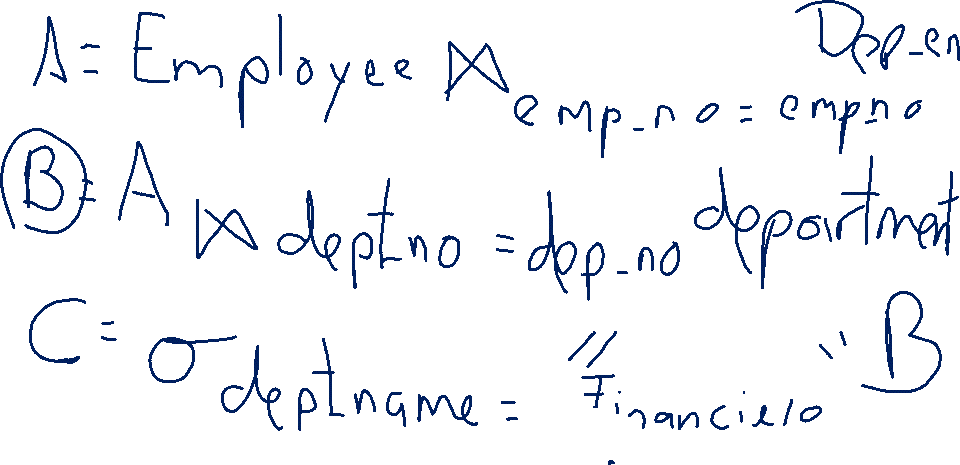 A = Employee ⋈ emp_no = emp_no Dep_en
B = A ⋈ dept_no = dep_no department
C = σ dept_name = "Financiero" B